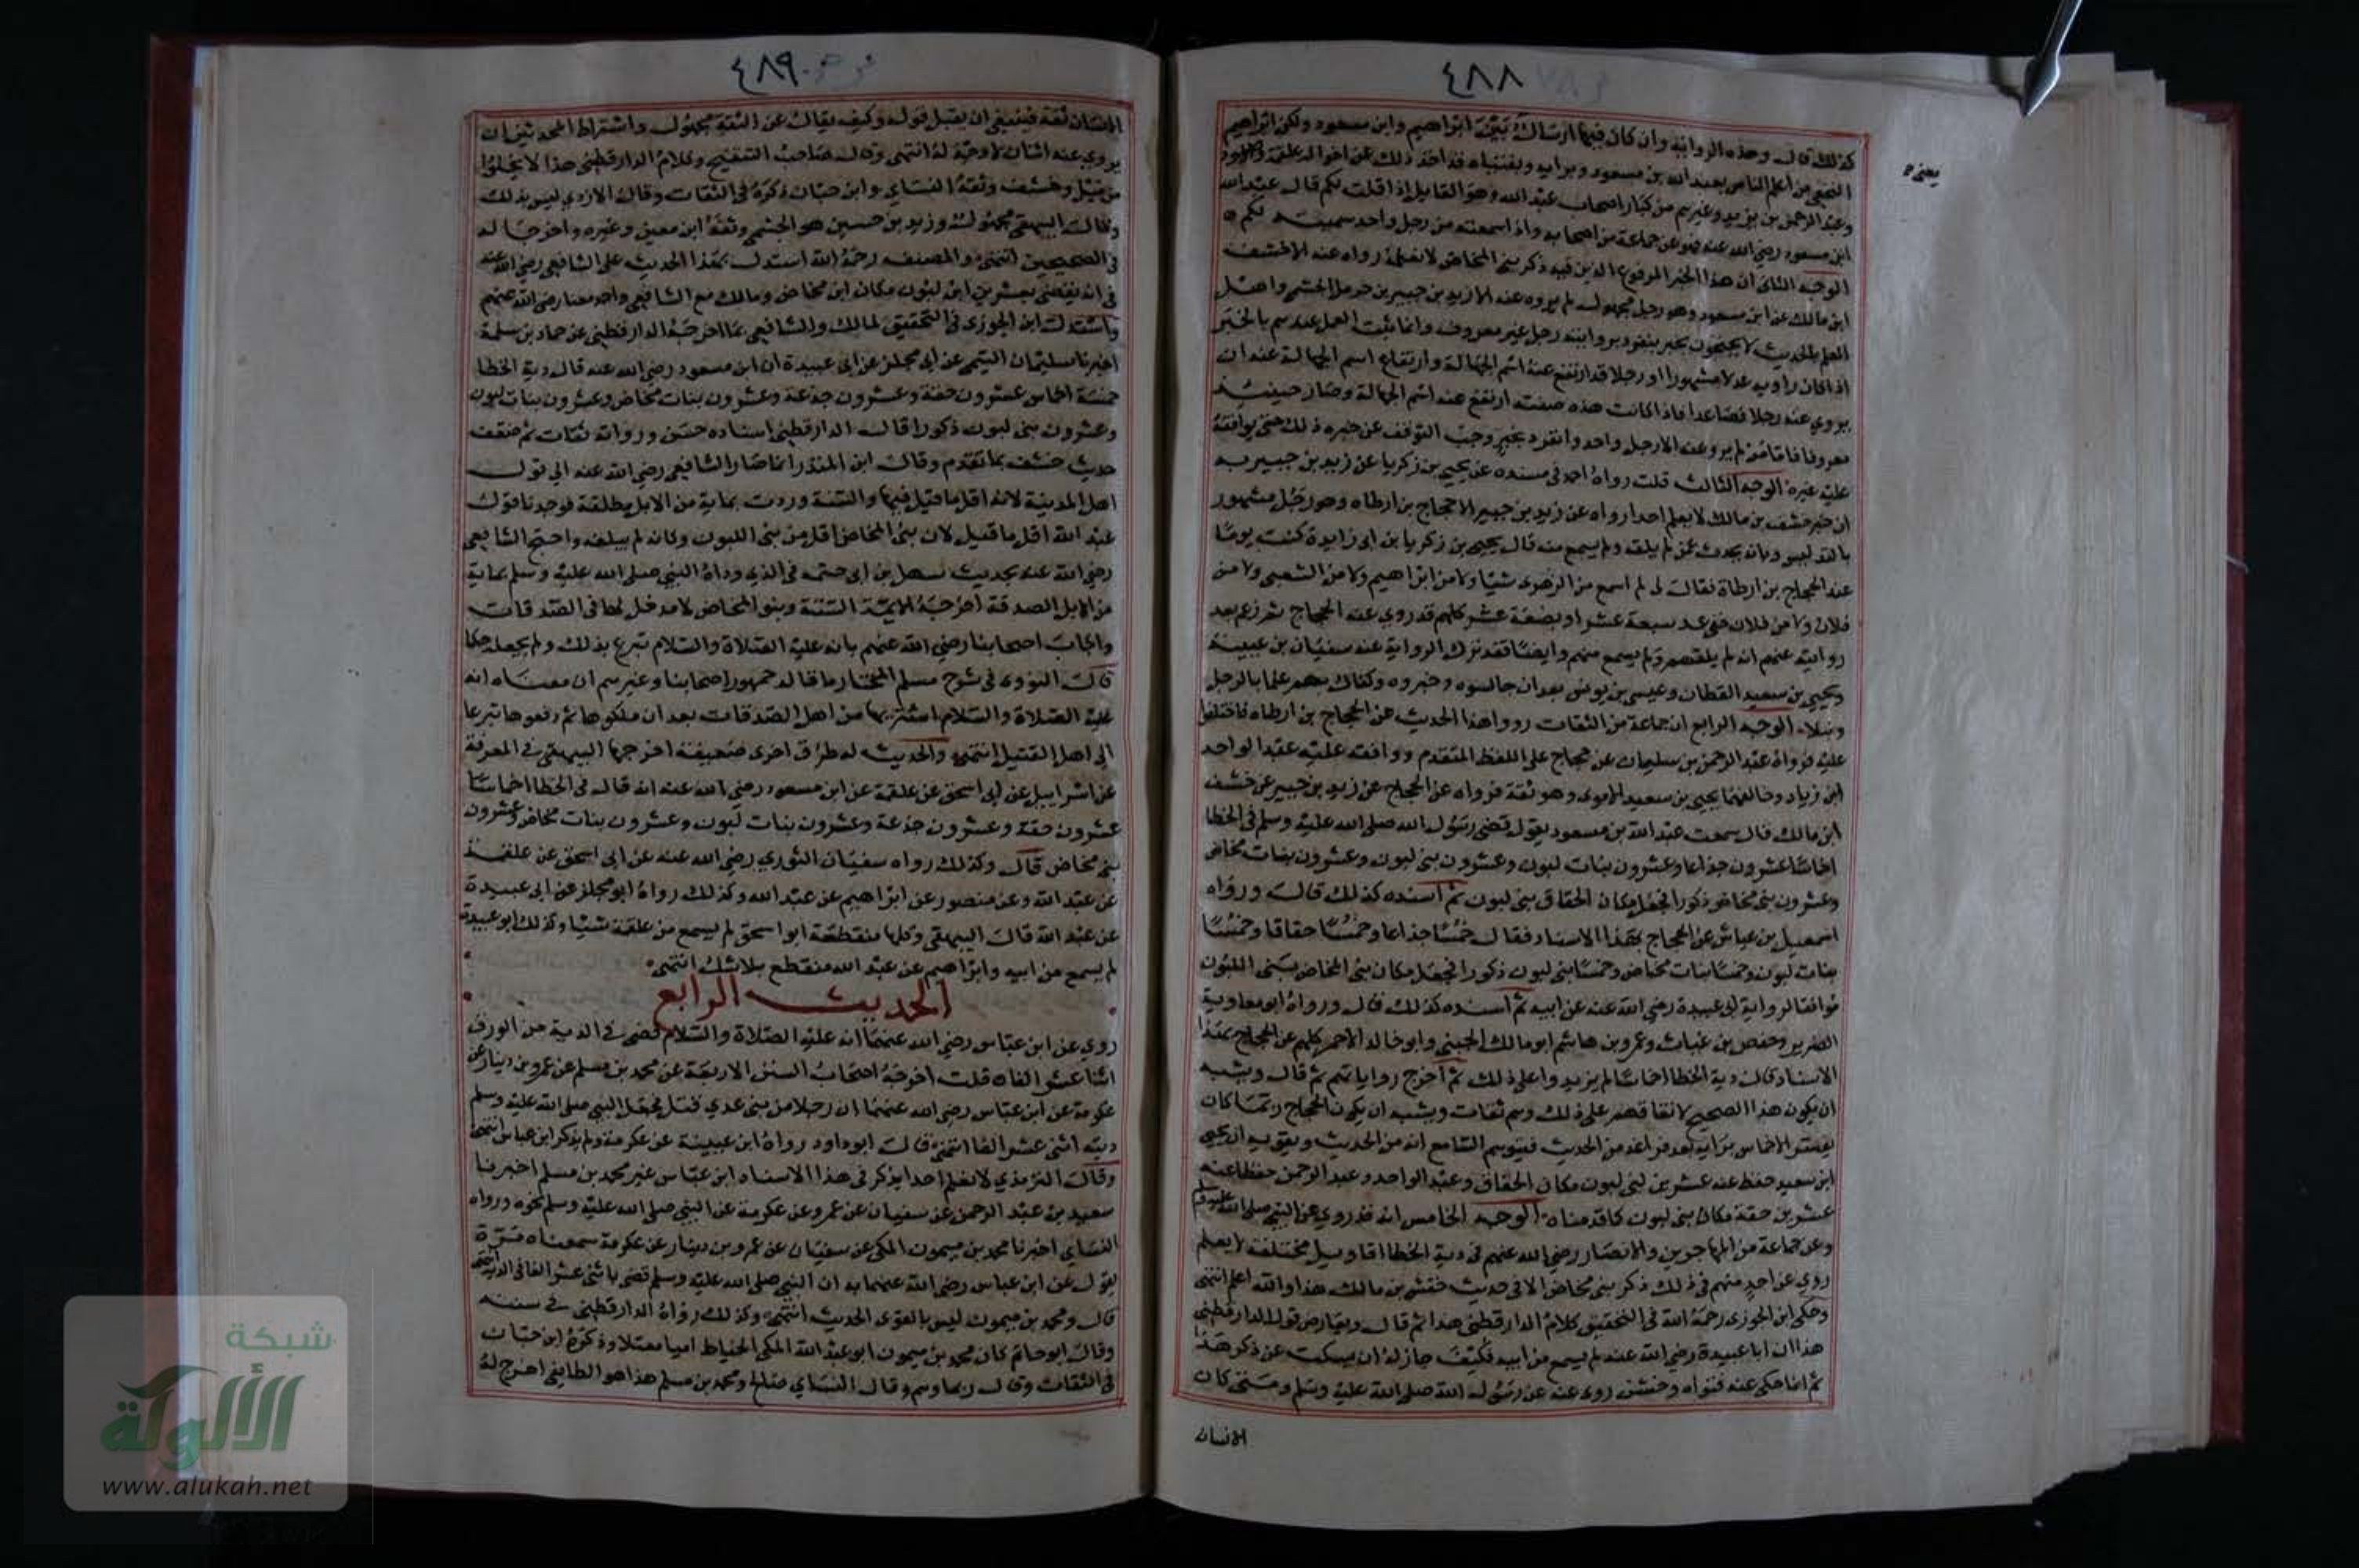 ٤٨٨
كذلك قال وهذه الرواية وان كان فيها ارسال بين ابراهيم وابن مسعود ولكن ابراهيم
النخعي من اعلم الناس بعبد الله بن مسعود وبرايه وبفتياه قد اخذ ذلك عن اخواله علقمة والاسود
وعبد الرحمن بن يزيد وغيرهم من كبار اصحاب عبد الله وهو القايل اذا قلت لكم قال عبد الله
ابن مسعود رضي الله عنه فهو عن جماعة من اصحابه واذا سمعته من رجل واحد سميته لكم
الوجه الثاني ان هذا الخبر المرفوع الذي فيه ذكر بني المخاض لا نعلمه رواه عنه الا خشف
ابن مالك عن ابن مسعود وهو رجل مجهول لم يروه عنه الا زيد بن جبير بن حرمل الجشمي واهل
العلم بالحديث لا يحتجون بخبر ينفرد بروايته رجل غير معروف وانما يثبت العمل عندهم بالخبر
اذا كان راويه عدلا مشهورا او رجلا قد ارتفع عنه اسم الجهالة وارتفاع اسم الجهالة عنه ان
يروي عنه رجلا فصاعدا فاذا كانت هذه صفته ارتفع عنه اسم الجهالة وصار حينئذ
معروفا فاما من لم يرو عنه الا رجل واحد وانفرد بخبر وجب التوقف عن خبره ذلك حتى يوافقه
عليه غيره الوجه الثالث قلت رواه احمد في مسنده عن يحيى بن زكريا عن زيد بن جبير به
ان خبر خشف بن مالك لا يعلم احدا رواه عن زيد بن جبير الا حجاج بن ارطاه وهو رجل مشهور
بالتدليس وبانه يحدث عمن لم يلقه ولم يسمع منه قال يحيى بن زكريا بن ابي زايدة كنت يوما
عند الحجاج بن ارطاة فقال لي لم اسمع من الزهري شيا ولا من ابراهيم ولا من الشعبي ولا من
فلان ولا من فلان حتى عد سبعة عشر او بضعة عشر كلهم قد روي عنه الحجاج ثم زعم بعد
روايته عنهم انه لم يلقهم ولم يسمع منهم وايضا فقد ترك الرواية عنه سفيان بن عيينة
ويحيى بن سعيد القطان وعيسى بن يونس بعد ان جالسوه وخبروه وكفاك بهم علما بالرجل
ونبلا الوجه الرابع ان جماعة من الثقات رووا هذا الحديث عن الحجاج بن ارطاه فاختلفوا
عليه فرواه عبد الرحمن بن سليمان عن حجاج على اللفظ المتقدم ووافقه عليه عبد الواحد
ابن زياد وخالفهما يحيى بن سعيد الاموي وهو ثقة فرواه عن الحجاج عن زيد بن جبير عن خشف
ابن مالك قال سمعت عبد الله بن مسعود يقول قضى رسول الله صلى الله عليه وسلم في الخطا
اخماسا عشرون جذاعا وعشرون بنات لبون وعشرون بني لبون وعشرون بنات مخاض
وعشرون بني مخاض ذكورا فجعل مكان الحقاق بني لبون ثم اسنده كذلك قال ورواه
اسمعيل بن عياش عن الحجاج بهذا الاسناد فقال خمسا جذاعا وخمسا حقاقا وخمسا
بنات لبون وخمسا بنات مخاض وخمسا بني لبون ذكورا فجعل مكان بني المخاض بني اللبون
موافقا لرواية ابي عبيدة رضي الله عنه عن ابيه ثم اسنده كذلك قال ورواه ابو معاوية
الضرير وحفص بن غياث وعمرو بن هاشم ابو مالك الجنبي وابو خالد الاحمر كلهم عن الحجاج بهذا
الاسناد قال دية الخطا اخماسا لم يزيدوا على ذلك ثم اخرج رواياتهم ثم قال ويشبه
ان يكون هذا الصحيح لاتفاقهم على ذلك وهم ثقات ويشبه ان يكون الحجاج ربما كان
يفسر الاخماس برايه بعد فراغه من الحديث فيتوهم السامع انه من الحديث ويقويه ان يحيى
ابن سعيد حفظ عنه عشرين بني لبون مكان الحقاق وعبد الواحد وعبد الرحمن حفظا عنه
عشرين حقة مكان بني لبون كما قدمناه الوجه الخامس انه قد روي عن النبي صلى الله عليه وسلم
وعن جماعة من المهاجرين والانصار رضي الله عنهم في دية الخطا اقاويل مختلفة لا يعلم
روي عن احد منهم في ذلك ذكر بني مخاض الا في حديث خشف بن مالك هذا والله اعلم انتهى
وحكى ابن الجوزي رحمه الله في التحقيق كلام الدارقطني هذا ثم قال ويعارض قول الدارقطني
هذا ان ابا عبيدة رضي الله عنه لم يسمع من ابيه فكيف جاز له ان يسكت عن ذكر هذا
ثم انما حكى عنه فتواه وخشف روى عنه عن رسول الله صلى الله عليه وسلم ومتى كان
الانسان
يعني
٤٨٩
الانسان ثقة فينبغي ان يقبل قوله وكيف يقال عن الثقة مجهول واشتراط المحدثين ان
يروي عنه اثنان لا وجه له انتهى وقال صاحب التنقيح وكلام الدارقطني هذا لا يخلوا
من ميل وخشف وثقه النسائي وابن حبان ذكره في الثقات وقال الازدي ليس بذلك
وقال البيهقي مجهول وزيد بن حسين هو الجشمي وثقه ابن معين وغيره واخرجا له
في الصحيحين انتهى والمصنف رحمه الله استدل بهذا الحديث على الشافعي رضي الله عنه
في انه يقضي بعشرين ابن لبون مكان ابن مخاض ومالك مع الشافعي واحمد معنا رضي الله عنهم
واستدل ابن الجوزي في التحقيق لمالك والشافعي بما اخرجه الدارقطني عن حماد بن سلمة
اخبرنا سليمان التيمي عن ابي مجلز عن ابي عبيدة ان ابن مسعود رضي الله عنه قال دية الخطا
خمسة اخماس عشرون حقة وعشرون جذعة وعشرون بنات مخاض وعشرون بنات لبون
وعشرون بني لبون ذكورا قال الدارقطني اسناده حسن ورواته ثقات ثم ضعف
حديث خشف بما تقدم وقال ابن المنذر انما صار الشافعي رضي الله عنه الى قول
اهل المدينة لانه اقل ما قيل فيها والسنة وردت بماية من الابل مطلقة فوجدنا قول
عبد الله اقل ما قيل لان بني المخاض اقل من بني اللبون وكانه لم يبلغه واحتج الشافعي
رضي الله عنه بحديث سهل بن ابي حثمه في الذي وداه النبي صلى الله عليه وسلم بماية
من الابل الصدقة اخرجه الايمة الستة وبنو المخاض لا مدخل لها في الصدقات
واجاب اصحابنا رضي الله عنهم بانه عليه الصلاة والسلام تبرع بذلك ولم يجعله حكما
قال النووي في شرح مسلم المختار ما قاله جمهور اصحابنا وغيرهم ان معناه انه
عليه الصلاة والسلام اشتراها من اهل الصدقات بعد ان ملكوها ثم دفعوها تبرعا
الى اهل القتيل انتهى والحديث له طرق اخرى ضعيفة اخرجها البيهقي في المعرفة
عن اسراييل عن ابي اسحق عن علقمة عن ابن مسعود رضي الله عنه انه قال في الخطا اخماسا
عشرون حقة وعشرون جذعة وعشرون بنات لبون وعشرون بنات مخاض وعشرون
بني مخاض قال وكذلك رواه سفيان الثوري رضي الله عنه عن ابي اسحق عن علقمة
عن عبد الله وعن منصور عن ابراهيم عن عبد الله وكذلك رواه ابو مجلز عن ابي عبيدة
عن عبد الله قال البيهقي وكلها منقطعة ابو اسحق لم يسمع من علقمة شيا وكذلك ابو عبيدة
لم يسمع من ابيه وابراهيم عن عبد الله منقطع بلا شك انتهى
الحديث الرابع
روي عن ابن عباس رضي الله عنهما انه عليه الصلاة والسلام قضى في الدية من الورق
اثنا عشر الفا قلت اخرجه اصحاب السنن الاربعة عن محمد بن مسلم عن عمرو بن دينار عن
عكرمة عن ابن عباس رضي الله عنهما ان رجلا من بني عدي قتل فجعل النبي صلى الله عليه وسلم
ديته اثني عشر الفا انتهى قال ابو داود رواه ابن عيينة عن عكرمة ولم يذكر ابن عباس انتهى
وقال الترمذي لا نعلم احدا يذكر في هذا الاسناد ابن عباس غير محمد بن مسلم اخبرنا
سعيد بن عبد الرحمن عن سفيان عن عمرو عن عكرمة عن النبي صلى الله عليه وسلم نحوه ورواه
النسائي اخبرنا محمد بن ميمون المكي عن سفيان عن عمرو بن دينار عن عكرمة سمعناه مرة
يقول عن ابن عباس رضي الله عنهما به ان النبي صلى الله عليه وسلم قضى باثني عشر الفا في الدية انتهى
قال ومحمد بن ميمون ليس بالقوي الحديث انتهى وكذلك رواه الدارقطني في سننه
وقال ابو حاتم كان محمد بن ميمون ابو عبد الله المكي الخياط اميا مغفلا وذكره ابن حبان
في الثقات وقال ربما وهم وقال النسائي صالح ومحمد بن مسلم هذا هو الطايفي اخرج له
شبكة
الألوكة
www.alukah.net